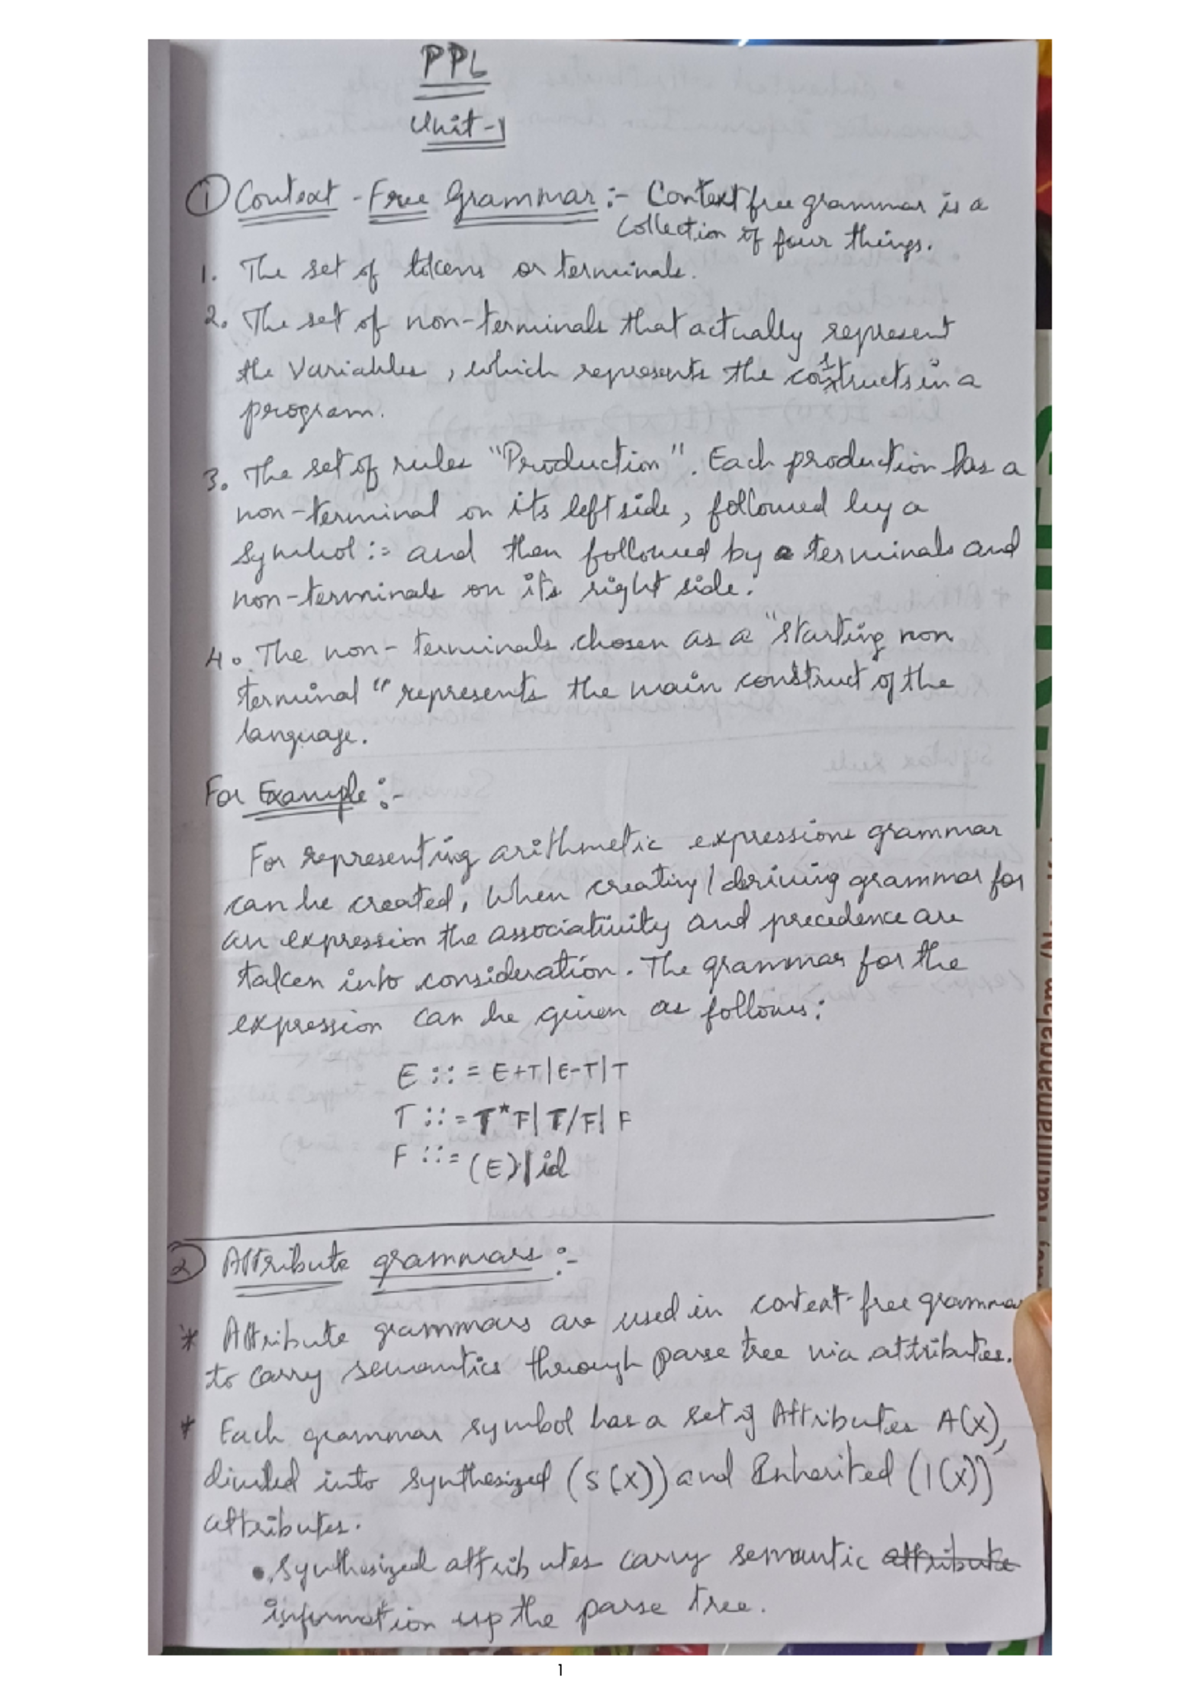 PPL
Unit-1
① Context-Free Grammar:- Context free grammar is a
Collection of four things.
1. The set of tokens or terminals.
2. The set of non-terminals that actually represent
the Variables, which represents the constructs in a
program.
3. The set of rules "Production". Each production has a
non-terminal on its left side, followed by a
Symbol := and then followed by a terminals and
non-terminals on its right side.
4. The non-terminals chosen as a "starting non
terminal" represents the main construct of the
language.
For Example:-
For representing arithmetic expressions grammar
can be created, When creating/deriving grammar for
an expression the associativity and precedence are
taken into consideration. The grammar for the
expression can be given as follows:
E ::= E+T|E-T|T
T ::= T*F|T/F|F
F ::= (E)|id
② Attribute grammars:-
* Attribute grammars are used in context-free grammar
to carry semantics through parse tree via attributes.
* Each grammar symbol has a set of Attributes A(X),
divided into synthesized (S(X)) and Inherited (I(X))
attributes.
• Synthesized attributes carry semantic attribute
information up the parse tree.
Kathiamangalam
1